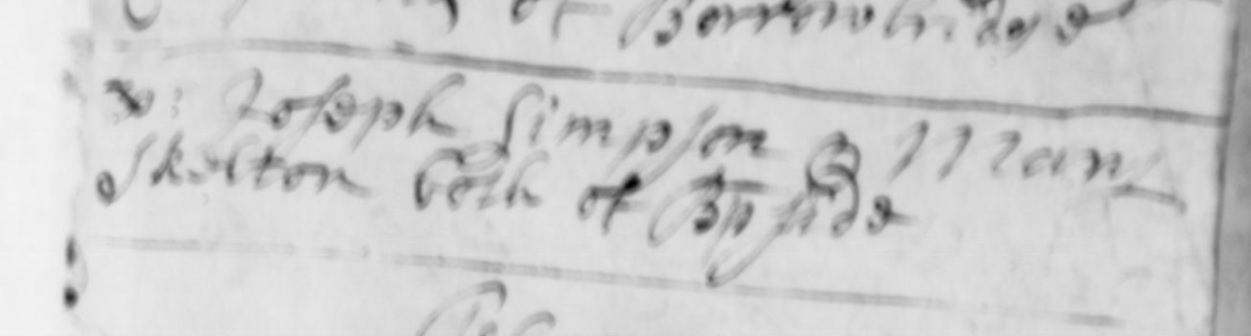 of Borrowbridge
Joseph Simpson & Mary
Skelton both of Bp side